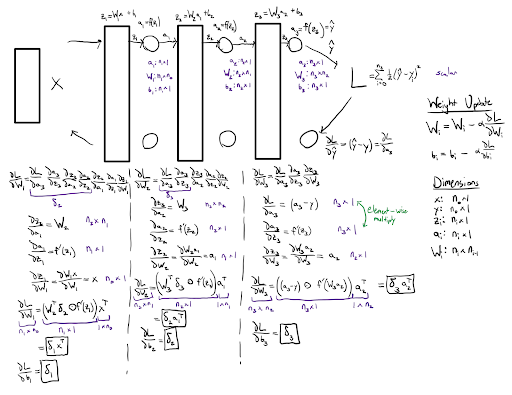 z₁=W₁x + b₁
a₁=f(z₁)
z₂=W₂a₁ + b₂
a₂=f(z₂)
z₃=W₃a₂ + b₃
a₃=f(z₃)=ŷ
z₁
a₁
z₂
a₂
z₃
ŷ
X
a₁: n₁×1
b₁: n₁×1
a₂: n₂×1
b₂: n₂×1
a₃: n₃×1
W₃: n₃×n₂
b₃: n₃×1
L = Σ ½(ŷ-y)²
scalar
∂L/∂ŷ = (ŷ-y) = ∂L/∂a₃
Weight Update
Wᵢ = Wᵢ - α ∂L/∂Wᵢ
bᵢ = bᵢ - α ∂L/∂bᵢ
Dimensions
zᵢ: nᵢ×1
aᵢ: nᵢ×1
Wᵢ: nᵢ×nᵢ₋₁
∂L/∂W₁ = ∂L/∂a₃ ∂a₃/∂z₃ ∂z₃/∂a₂ ∂a₂/∂z₂ ∂z₂/∂a₁ ∂a₁/∂z₁ ∂z₁/∂W₁
δ₂
∂z₂/∂a₁ = W₂ n₂×n₁
∂a₁/∂z₁ = f'(z₁) n₁×1
∂z₁/∂W₁ = ∂W₁x/∂W₁ = x n₀×1
∂L/∂W₁ = (W₂ᵀ δ₂ ⊙ f'(z₁)) xᵀ
n₁×n₀ n₁×1 1×n₀
= δ₁xᵀ
∂L/∂b₁ = δ₁
∂L/∂W₂ = ∂L/∂a₃ ∂a₃/∂z₃ ∂z₃/∂a₂ ∂a₂/∂z₂ ∂z₂/∂W₂
δ₃
∂z₃/∂a₂ = W₃ n₃×n₂
∂a₂/∂z₂ = f'(z₂) n₂×1
∂z₂/∂W₂ = ∂W₂a₁/∂W₂ = a₁ n₁×1
∂L/∂W₂ = (W₃ᵀ δ₃ ⊙ f'(z₂)) a₁ᵀ
n₂×n₁ n₂×1 1×n₁
= δ₂a₁ᵀ
∂L/∂b₂ = δ₂
∂L/∂W₃ = ∂L/∂a₃ ∂a₃/∂z₃ ∂z₃/∂W₃
∂L/∂a₃ = (a₃-y) n₃×1
element-wise
multiply
∂a₃/∂z₃ = f'(z₃) n₃×1
∂z₃/∂W₃ = ∂W₃a₂/∂W₃ = a₂ n₂×1
∂L/∂W₃ = ((a₃-y) ⊙ f'(W₃a₂)) a₂ᵀ = δ₃a₂ᵀ
n₃×n₂ n₃×1 1×n₂
∂L/∂b₃ = δ₃